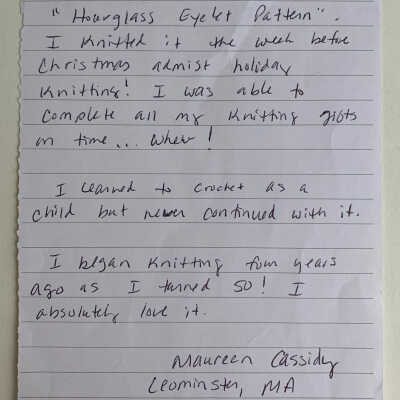 "Hourglass Eyelet Pattern".
I knitted it the week before
Christmas admist holiday
knitting! I was able to
complete all my knitting gifts
on time... whew!
I learned to crochet as a
child but never continued with it.
I began knitting four years
ago as I turned 50! I
absolutely love it.
Maureen Cassidy
Leominster, MA